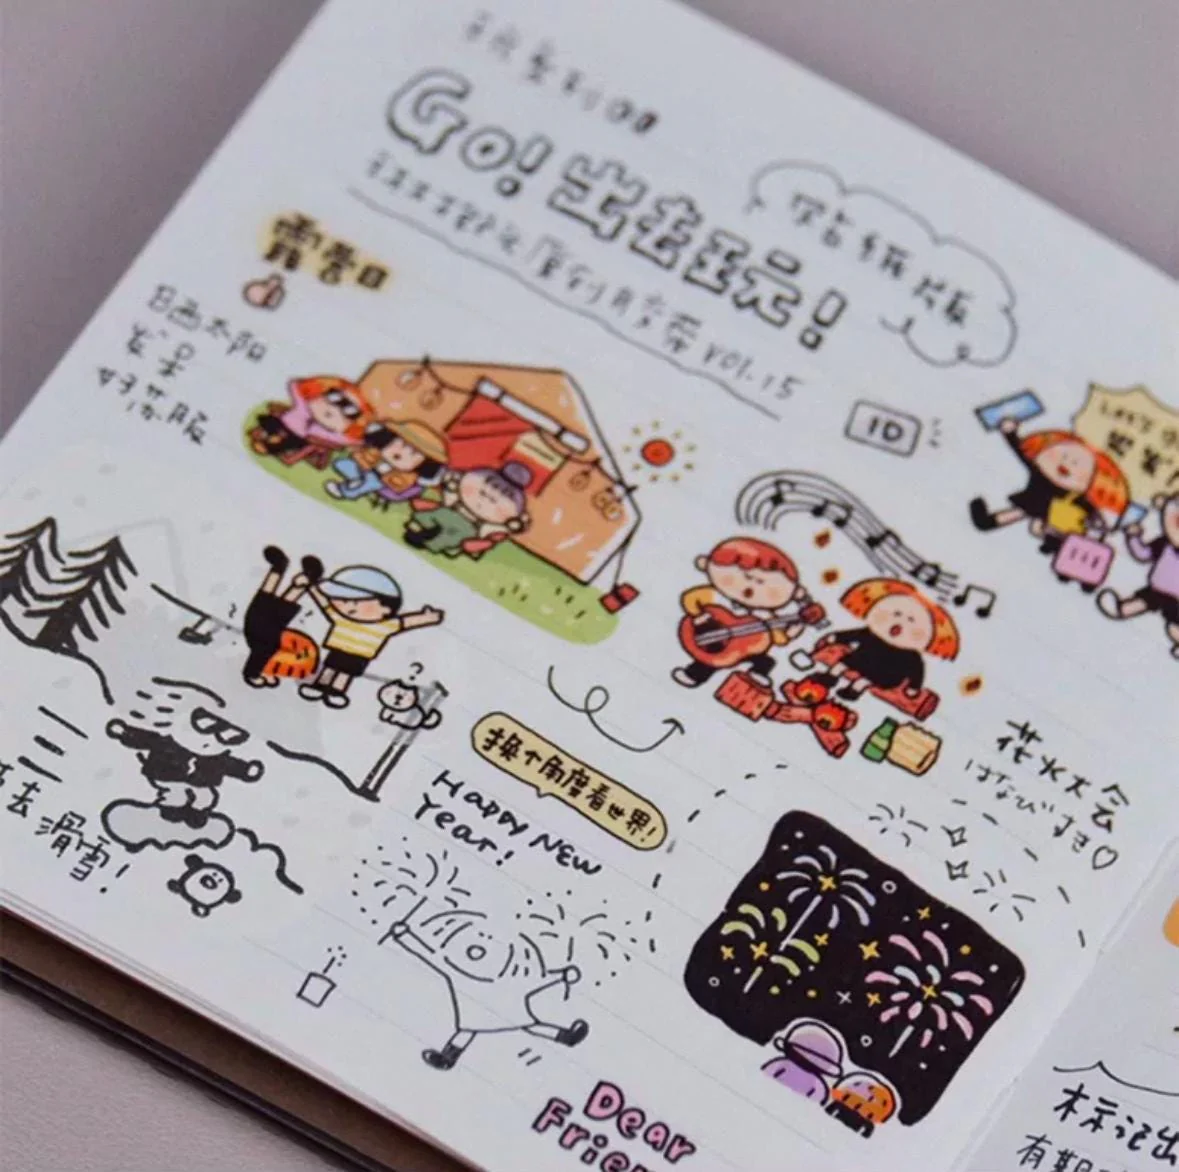 Go! 出去玩!
贴纸版
VOL.15
露营日
日西太阳
发呆
好舒服
ID
LET'S
换个角度看世界!
Happy New
Year!
去滑雪!
花火大会
はなび すき♡
Dear
Frien
标记出
有期